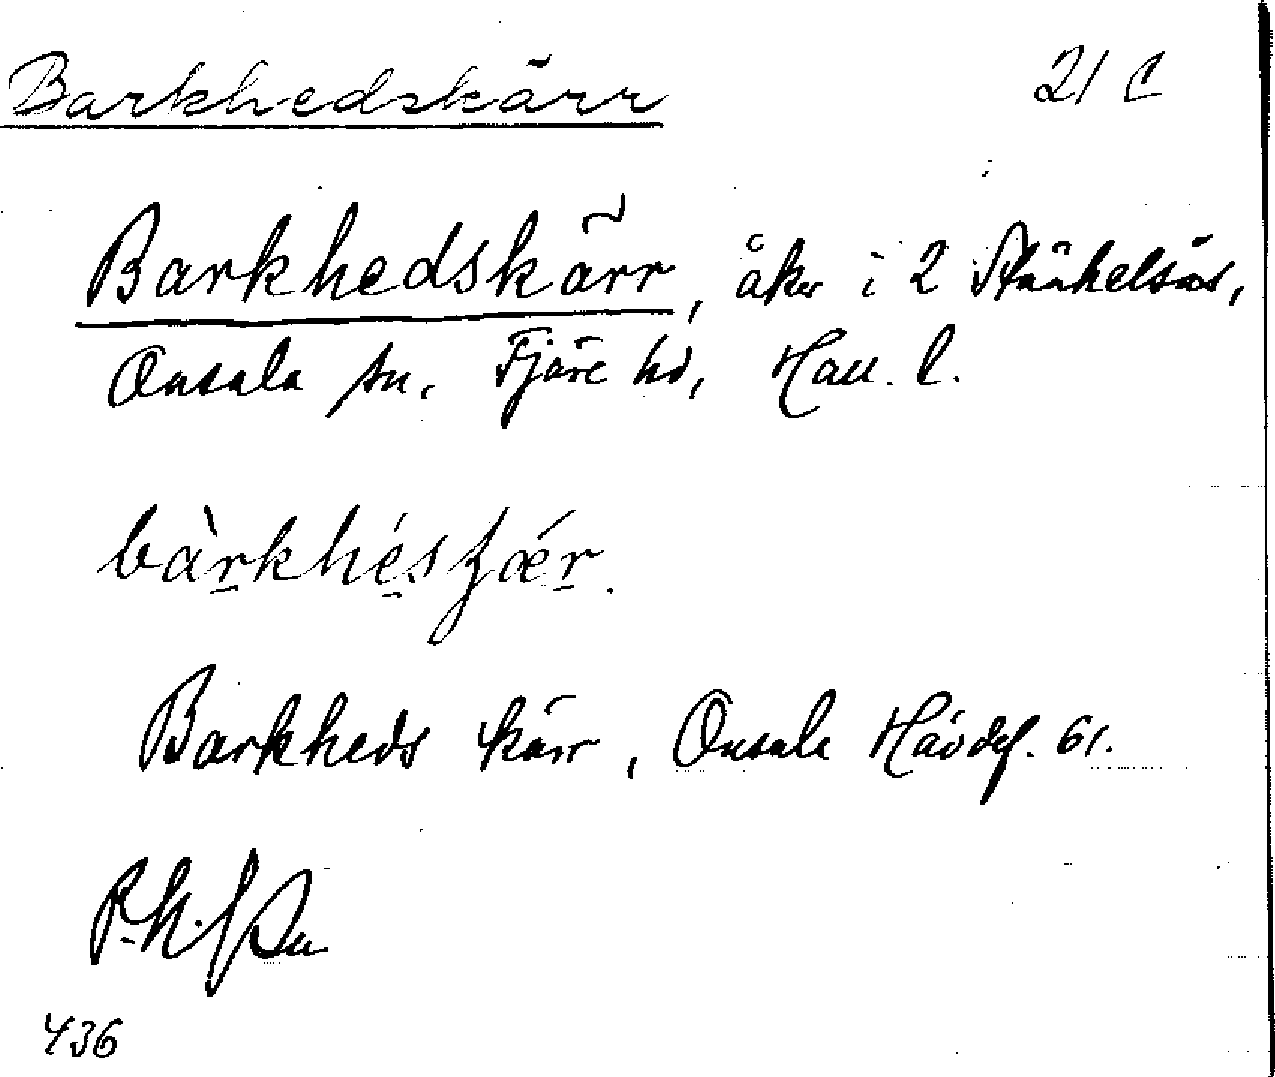 Barkhedskärr 21 C
Barkhedskärr, åker i 2 Stänkelsås,
Onsala sn. Fjäre hd, Hall. l.
bàrkhésʒǽr.
Barkheds kärr, Onsala Hävdef. 61.
436